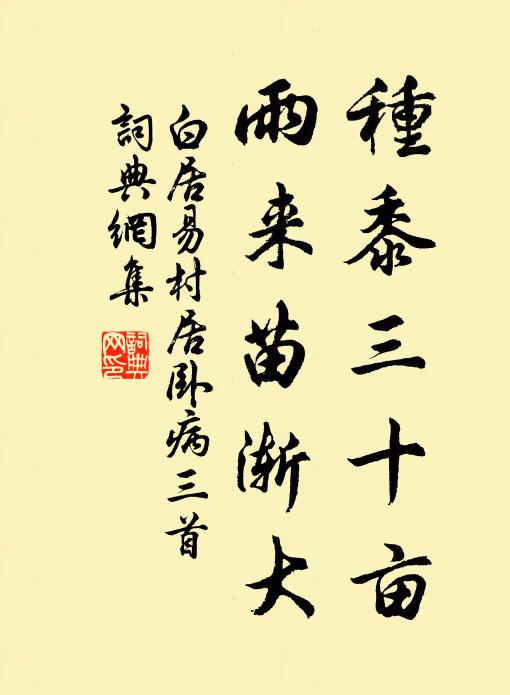 種黍三十亩
雨来苗渐大
白居易村居卧病三首
詞典網集
詞典網印